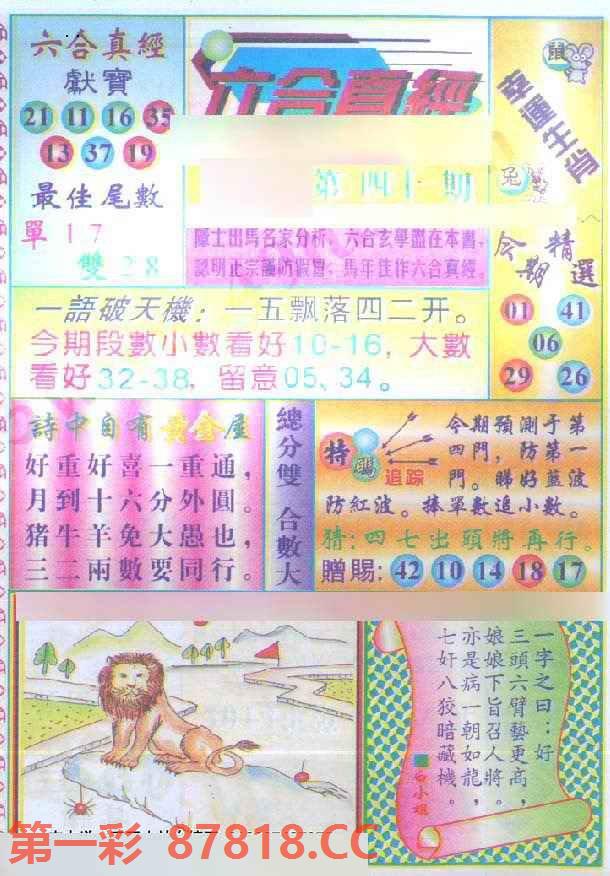 六合真經
獻寶
21 11 16 35
13 37 19
最佳尾數
單17
雙28
六合真經
第四十期
隱士出馬名家分析，六合玄學盡在本書，
認明正宗謹防假冒，馬年佳作六合真經。
鼠
幸運生肖
兔
今期精選
01 41
06
29 26
一語破天機：一五飘落四二开。
今期段數小數看好10-16，大數
看好32-38，留意05、34。
詩中自有黃金屋
好重好喜一重通，
月到十六分外圓。
猪牛羊兔大愚也，
三二兩數要同行。
總分雙 合數大
特碼
追踪
今期預測于第
四門，防第一
門。睇好藍波
防紅波。捧單數追小數。
猜：四七出頭將再行。
贈賜：42 10 14 18 17
一字之曰：好
三頭六臂藝更高，
娘娘下旨召人將。
亦是病一朝如龍，
七奸八狡暗藏機。
白小姐
第一彩 87818.CC